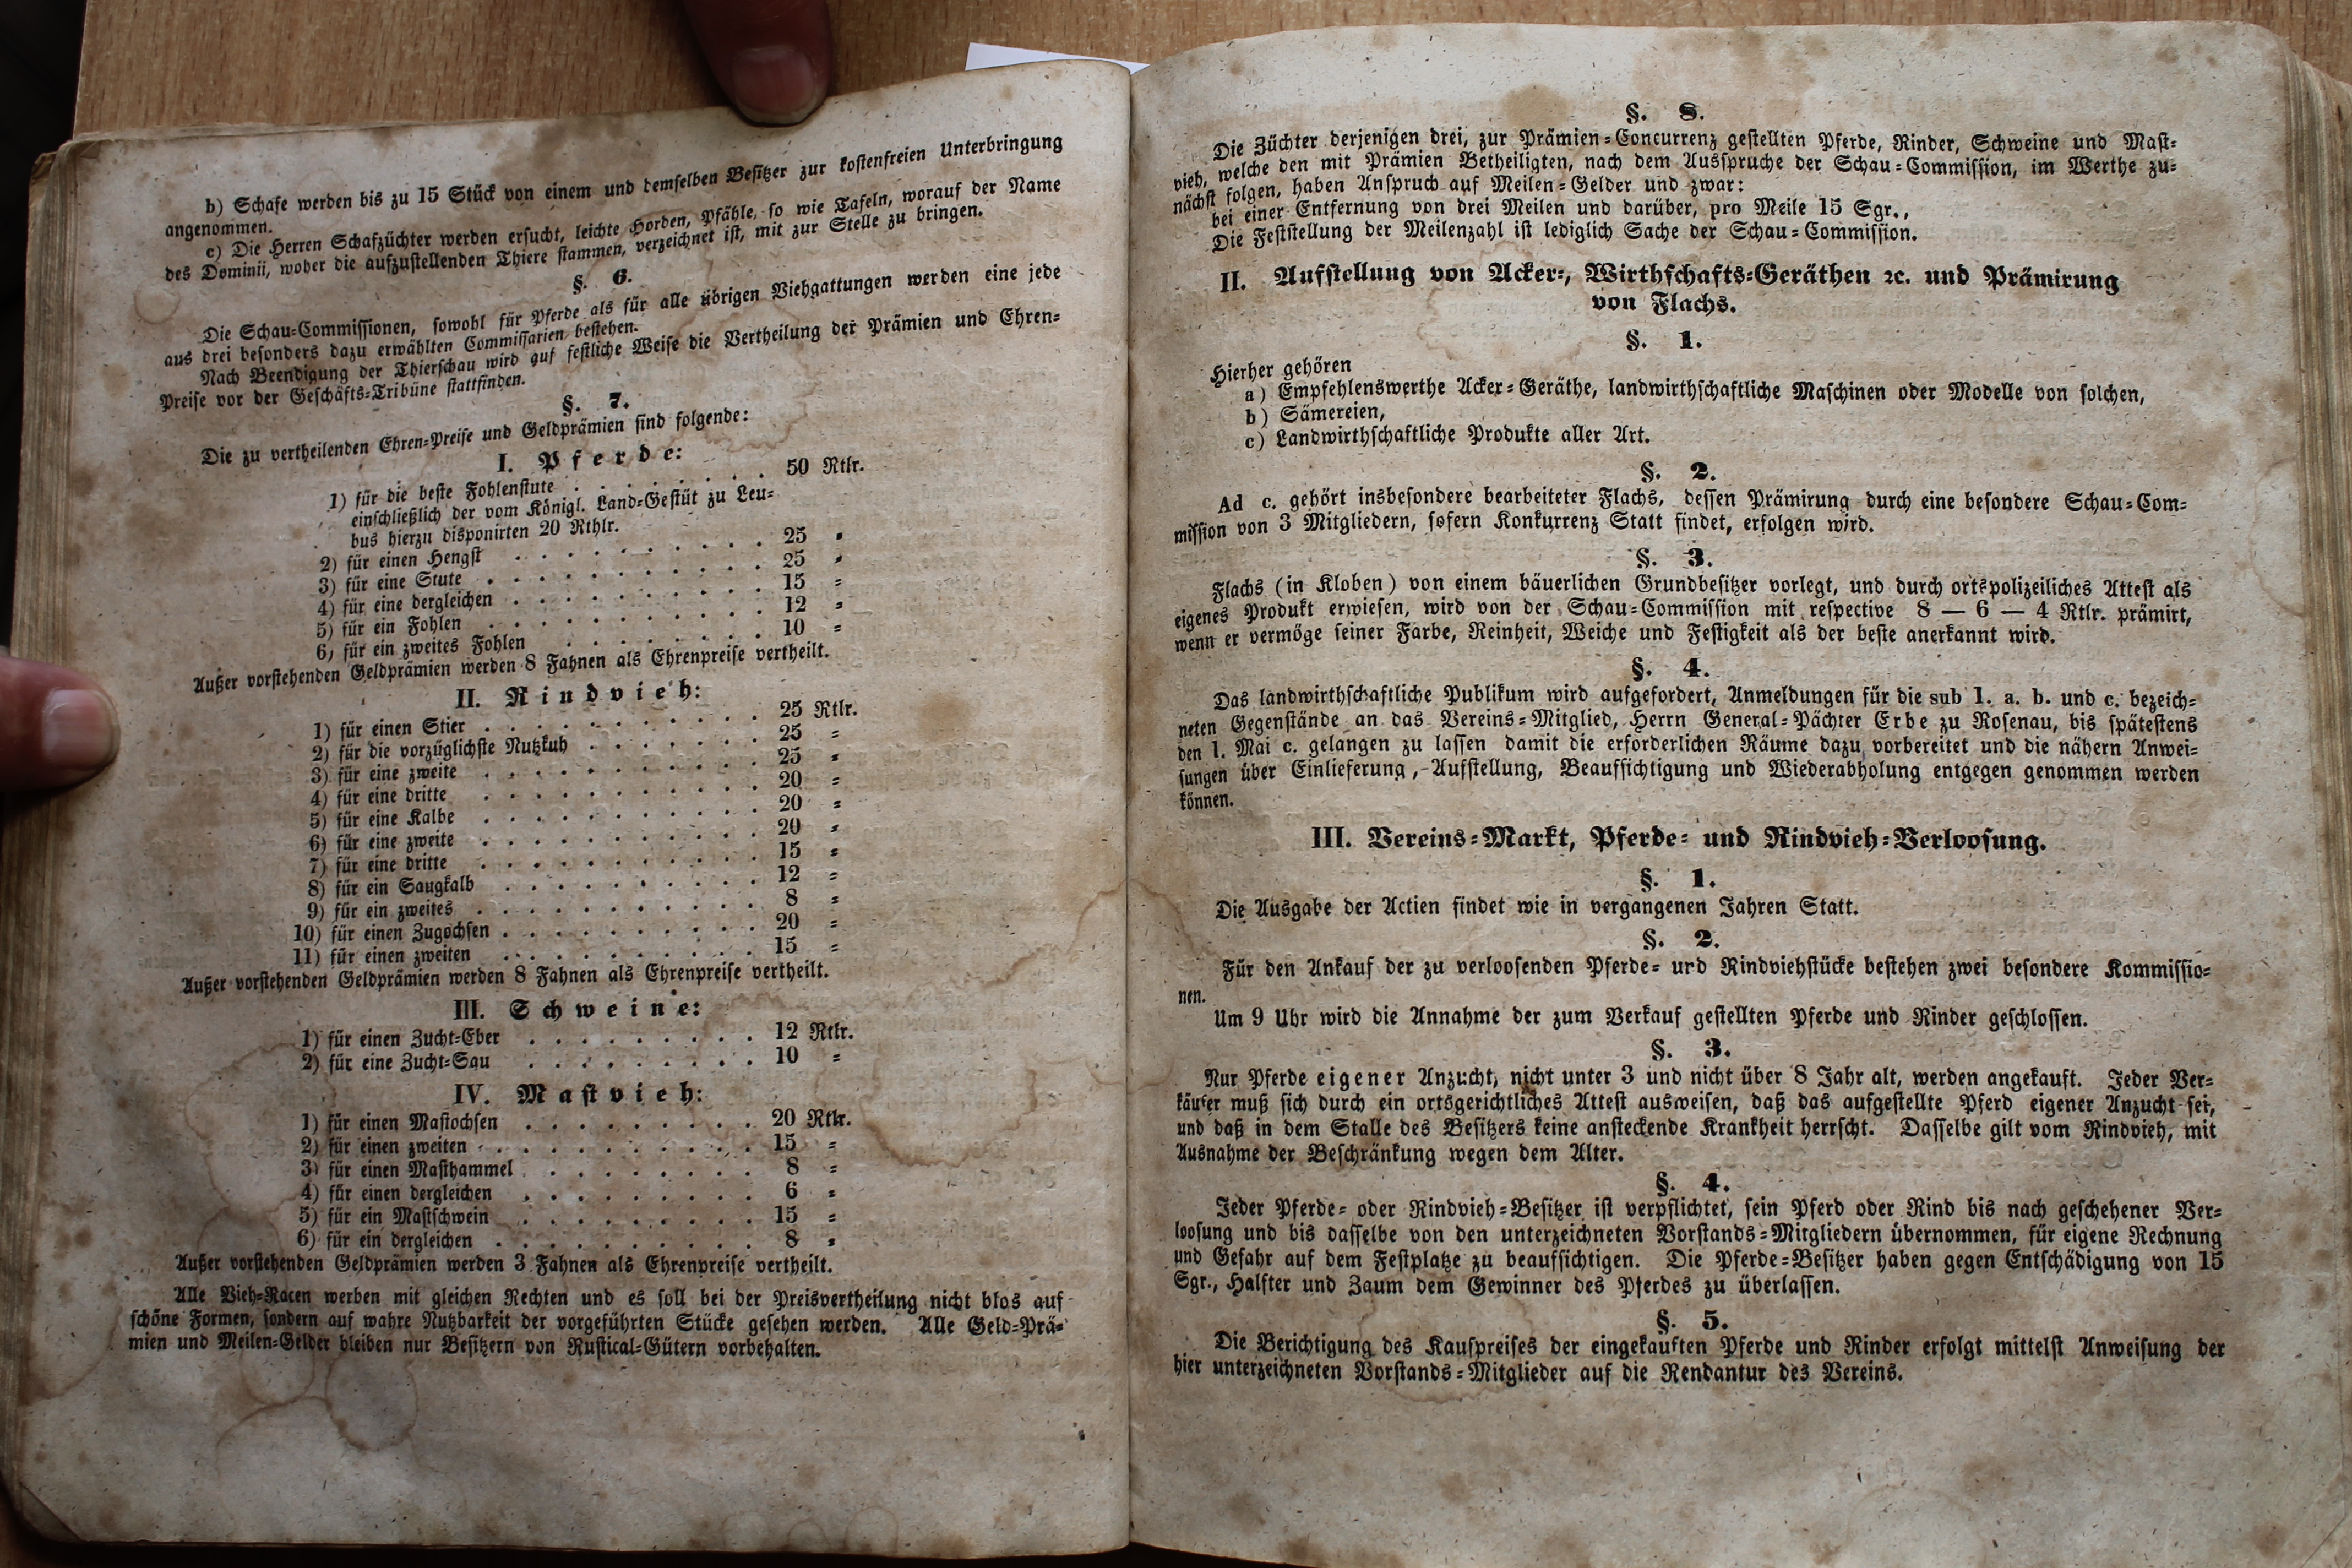 b) Schafe werden bis zu 15 Stück von einem und demselben Besitzer zur kostenfreien Unterbringung
angenommen.
c) Die Herren Schafzüchter werden ersucht, leichte Horden, Pfähle, so wie Tafeln, worauf der Name
des Dominii, woher die aufzustellenden Thiere stammen, verzeichnet ist, mit zur Stelle zu bringen.
§. 6.
Die Schau=Commissionen, sowohl für Pferde als für alle übrigen Viehgattungen werden eine jede
aus drei besonders dazu erwählten Commissarien bestehen.
Nach Beendigung der Thierschau wird auf festliche Weise die Vertheilung der Prämien und Ehren=
Preise vor der Geschäfts=Tribüne stattfinden.
§. 7.
Die zu vertheilenden Ehren=Preise und Geldprämien sind folgende:
I. Pferde:
1) für die beste Fohlenstute . . . . . . . 50 Rtlr.
einschließlich der vom Königl. Land=Gestüt zu Leu=
bus hierzu disponirten 20 Rthlr.
2) für einen Hengst . . . . . . . . . . 25 =
3) für eine Stute . . . . . . . . . . . 25 =
4) für eine dergleichen . . . . . . . . . . 15 =
5) für ein Fohlen . . . . . . . . . . . 12 =
6) für ein zweites Fohlen . . . . . . . . 10 =
Außer vorstehenden Geldprämien werden 8 Fahnen als Ehrenpreise vertheilt.
II. Rindvieh:
1) für einen Stier . . . . . . . . . . . 25 Rtlr.
2) für die vorzüglichste Nutzkuh . . . . . . . 25 =
3) für eine zweite . . . . . . . . . . . 25 =
4) für eine dritte . . . . . . . . . . . 20 =
5) für eine Kalbe . . . . . . . . . . . 20 =
6) für eine zweite . . . . . . . . . . . 20 =
7) für eine dritte . . . . . . . . . . . 15 =
8) für ein Saugkalb . . . . . . . . . . 12 =
9) für ein zweites . . . . . . . . . . . 8 =
10) für einen Zugochsen . . . . . . . . . . 20 =
11) für einen zweiten . . . . . . . . . . 15 =
Außer vorstehenden Geldprämien werden 8 Fahnen als Ehrenpreise vertheilt.
III. Schweine:
1) für einen Zucht=Eber . . . . . . . . . 12 Rtlr.
2) für eine Zucht=Sau . . . . . . . . . 10 =
IV. Mastvieh:
1) für einen Mastochsen . . . . . . . . . 20 Rtlr.
2) für einen zweiten . . . . . . . . . . 15 =
3) für einen Masthammel . . . . . . . . 8 =
4) für einen dergleichen . . . . . . . . . 6 =
5) für ein Mastschwein . . . . . . . . . 15 =
6) für ein dergleichen . . . . . . . . . . 8 =
Außer vorstehenden Geldprämien werden 3 Fahnen als Ehrenpreise vertheilt.
Alle Vieh=Racen werben mit gleichen Rechten und es soll bei der Preisvertheilung nicht blos auf
schöne Formen, sondern auf wahre Nutzbarkeit der vorgeführten Stücke gesehen werden. Alle Geld=Prä=
mien und Meilen=Gelder bleiben nur Besitzern von Rustical=Gütern vorbehalten.
§. 8.
Die Züchter derjenigen drei, zur Prämien=Concurrenz gestellten Pferde, Rinder, Schweine und Mast=
vieh, welche den mit Prämien Betheiligten, nach dem Ausspruche der Schau=Commission, im Werthe zu=
nächst folgen, haben Anspruch auf Meilen=Gelder und zwar:
bei einer Entfernung von drei Meilen und darüber, pro Meile 15 Sgr.,
Die Feststellung der Meilenzahl ist lediglich Sache der Schau=Commission.
II. Aufstellung von Acker=, Wirthschafts=Geräthen ꝛc. und Prämirung
von Flachs.
§. 1.
Hierher gehören
a) Empfehlenswerthe Acker=Geräthe, landwirthschaftliche Maschinen oder Modelle von solchen,
b) Sämereien,
c) Landwirthschaftliche Produkte aller Art.
§. 2.
Ad c. gehört insbesondere bearbeiteter Flachs, dessen Prämirung durch eine besondere Schau=Com=
mission von 3 Mitgliedern, sofern Konkurrenz Statt findet, erfolgen wird.
§. 3.
Flachs (in Kloben) von einem bäuerlichen Grundbesitzer vorlegt, und durch ortspolizeiliches Attest als
eigenes Produkt erwiesen, wird von der Schau=Commission mit respective 8 — 6 — 4 Rtlr. prämirt,
wenn er vermöge seiner Farbe, Reinheit, Weiche und Festigkeit als der beste anerkannt wird.
§. 4.
Das landwirthschaftliche Publikum wird aufgefordert, Anmeldungen für die sub 1. a. b. und c. bezeich=
neten Gegenstände an das Vereins=Mitglied, Herrn General=Pächter Erbe zu Rosenau, bis spätestens
den 1. Mai c. gelangen zu lassen damit die erforderlichen Räume dazu vorbereitet und die nähern Anwei=
sungen über Einlieferung, Aufstellung, Beaufsichtigung und Wiederabholung entgegen genommen werden
können.
III. Vereins=Markt, Pferde= und Rindvieh=Verloosung.
§. 1.
Die Ausgabe der Actien findet wie in vergangenen Jahren Statt.
§. 2.
Für den Ankauf der zu verloosenden Pferde= und Rindviehstücke bestehen zwei besondere Kommissio=
nen.
Um 9 Uhr wird die Annahme der zum Verkauf gestellten Pferde und Rinder geschlossen.
§. 3.
Nur Pferde eigener Anzucht, nicht unter 3 und nicht über 8 Jahr alt, werden angekauft. Jeder Ver=
käufer muß sich durch ein ortsgerichtliches Attest ausweisen, daß das aufgestellte Pferd eigener Anzucht sei,
und daß in dem Stalle des Besitzers keine ansteckende Krankheit herrscht. Dasselbe gilt vom Rindvieh, mit
Ausnahme der Beschränkung wegen dem Alter.
§. 4.
Jeder Pferde= oder Rindvieh=Besitzer ist verpflichtet, sein Pferd oder Rind bis nach geschehener Ver=
loosung und bis dasselbe von den unterzeichneten Vorstands=Mitgliedern übernommen, für eigene Rechnung
und Gefahr auf dem Festplatze zu beaufsichtigen. Die Pferde=Besitzer haben gegen Entschädigung von 15
Sgr., Halfter und Zaum dem Gewinner des Pferdes zu überlassen.
§. 5.
Die Berichtigung des Kaufpreises der eingekauften Pferde und Rinder erfolgt mittelst Anweisung der
hier unterzeichneten Vorstands=Mitglieder auf die Rendantur des Vereins.